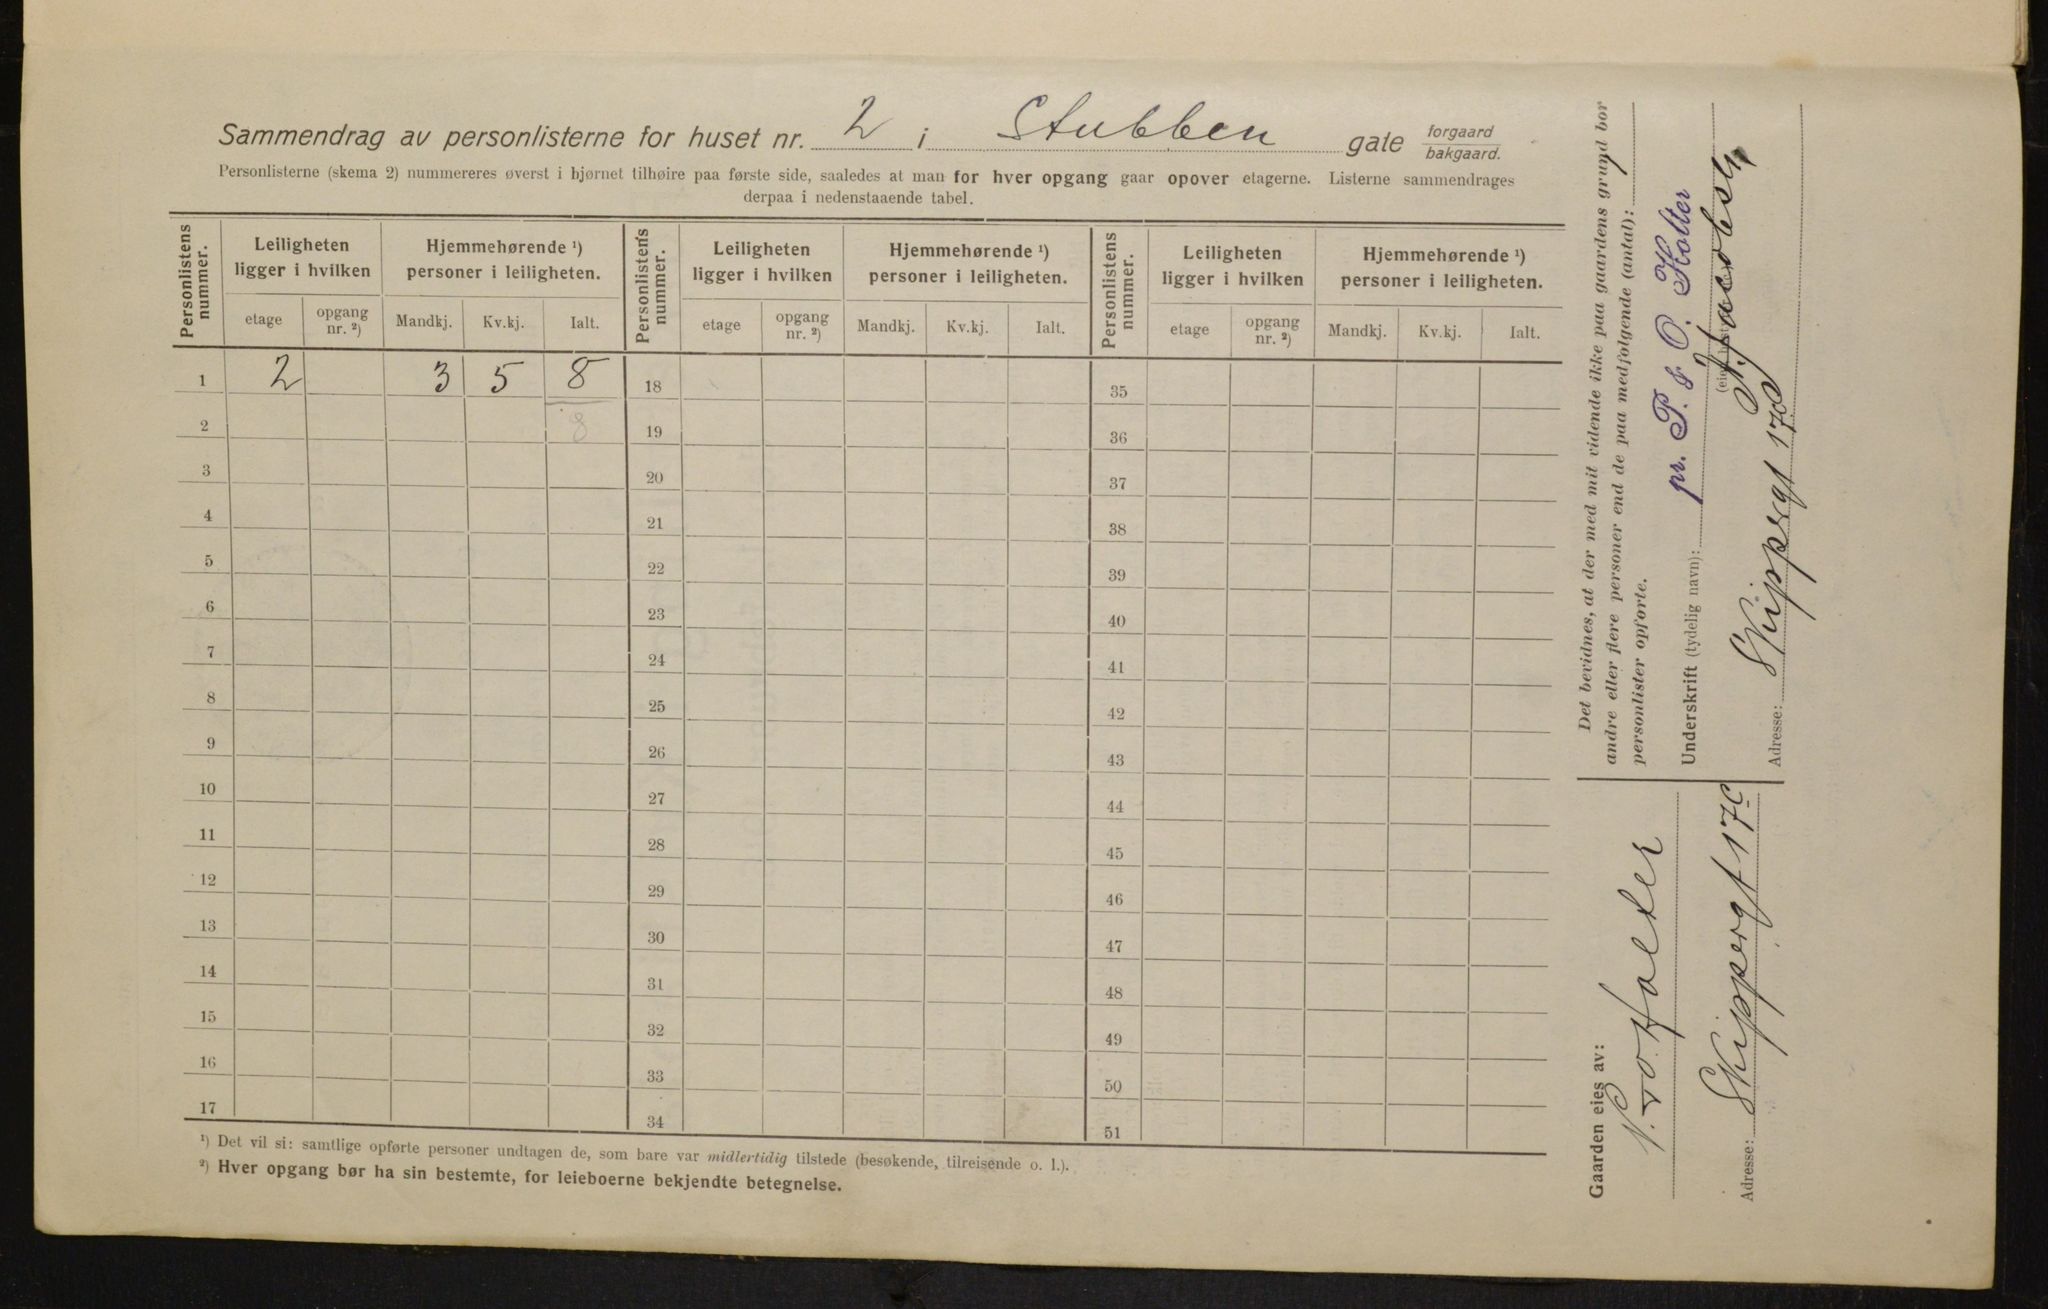 Sammendrag av personlisterne for huset nr. 2 i Stubben gate forgaard bakgaard.
Personlisterne (skema 2) nummereres øverst i hjørnet tilhøire paa første side, saaledes at man for hver opgang gaar opover etagerne. Listerne sammendrages
derpaa i nedenstaaende tabel.
Personlistens nummer. Leiligheten ligger i hvilken Hjemmehørende ¹) personer i leiligheten. Personlistens nummer. Leiligheten ligger i hvilken Hjemmehørende ¹) personer i leiligheten. Personlistens nummer. Leiligheten ligger i hvilken Hjemmehørende ¹) personer i leiligheten.
etage opgang nr. ²) Mandkj. Kv.kj. Ialt. etage opgang nr. ²) Mandkj. Kv.kj. Ialt. etage opgang nr. ²) Mandkj. Kv.kj. Ialt.
1 2 3 5 8 18 35
2 8 19 36
3 20 37
4 21 38
5 22 39
6 23 40
7 24 41
8 25 42
9 26 43
10 27 44
11 28 45
12 29 46
13 30 47
14 31 48
15 32 49
16 33 50
17 34 51
¹) Det vil si: samtlige opførte personer undtagen de, som bare var midlertidig tilstede (besøkende, tilreisende o. l.).
²) Hver opgang bør ha sin bestemte, for leieboerne bekjendte betegnelse.
Det bevidnes, at der med mit vidende ikke paa gaardens grund bor
andre eller flere personer end de paa medfølgende (antal):
personlister opførte.
pr. P. & O. Holter
Underskrift (tydelig navn):
Adresse: Skippergt 17c
Gaarden eies av:
Holter
Adresse: Skippergt 17c